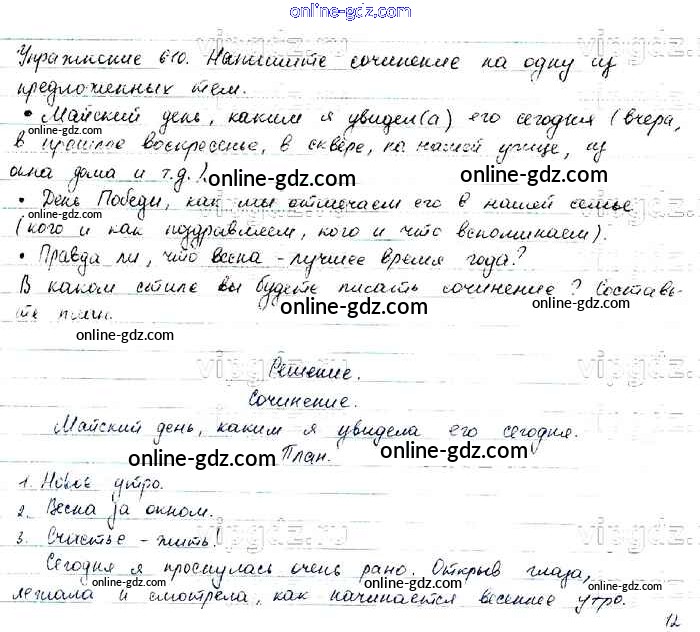 online-gdz.com
Упражнение 610. Напишите сочинение на одну из
предложенных тем.
• Майский день, каким я увидел(а) его сегодня (вчера,
online-gdz.com
online-gdz.com
в прошлое воскресенье, в сквере, на нашей улице, из
окна дома и т.д.).
online-gdz.com
online-gdz.com
• День Победы, как мы отмечаем его в нашей семье
(кого и как поздравляем, кого и что вспоминаем).
online-gdz.com
• Правда ли, что весна - лучшее время года?
В каком стиле вы будете писать сочинение? Составь-
те план.
online-gdz.com
online-gdz.com
online-gdz.com
vipgdz.ru
vipgdz.ru
Решение.
Сочинение.
online-gdz.com
Майский день, каким я увидела его сегодня.
План.
online-gdz.com
online-gdz.com
1. Новое утро.
2. Весна за окном.
vipgdz.ru
3. Счастье - жить!
Сегодня я проснулась очень рано. Открыв глаза,
online-gdz.com
online-gdz.com
лежала и смотрела, как начинается весеннее утро.
12